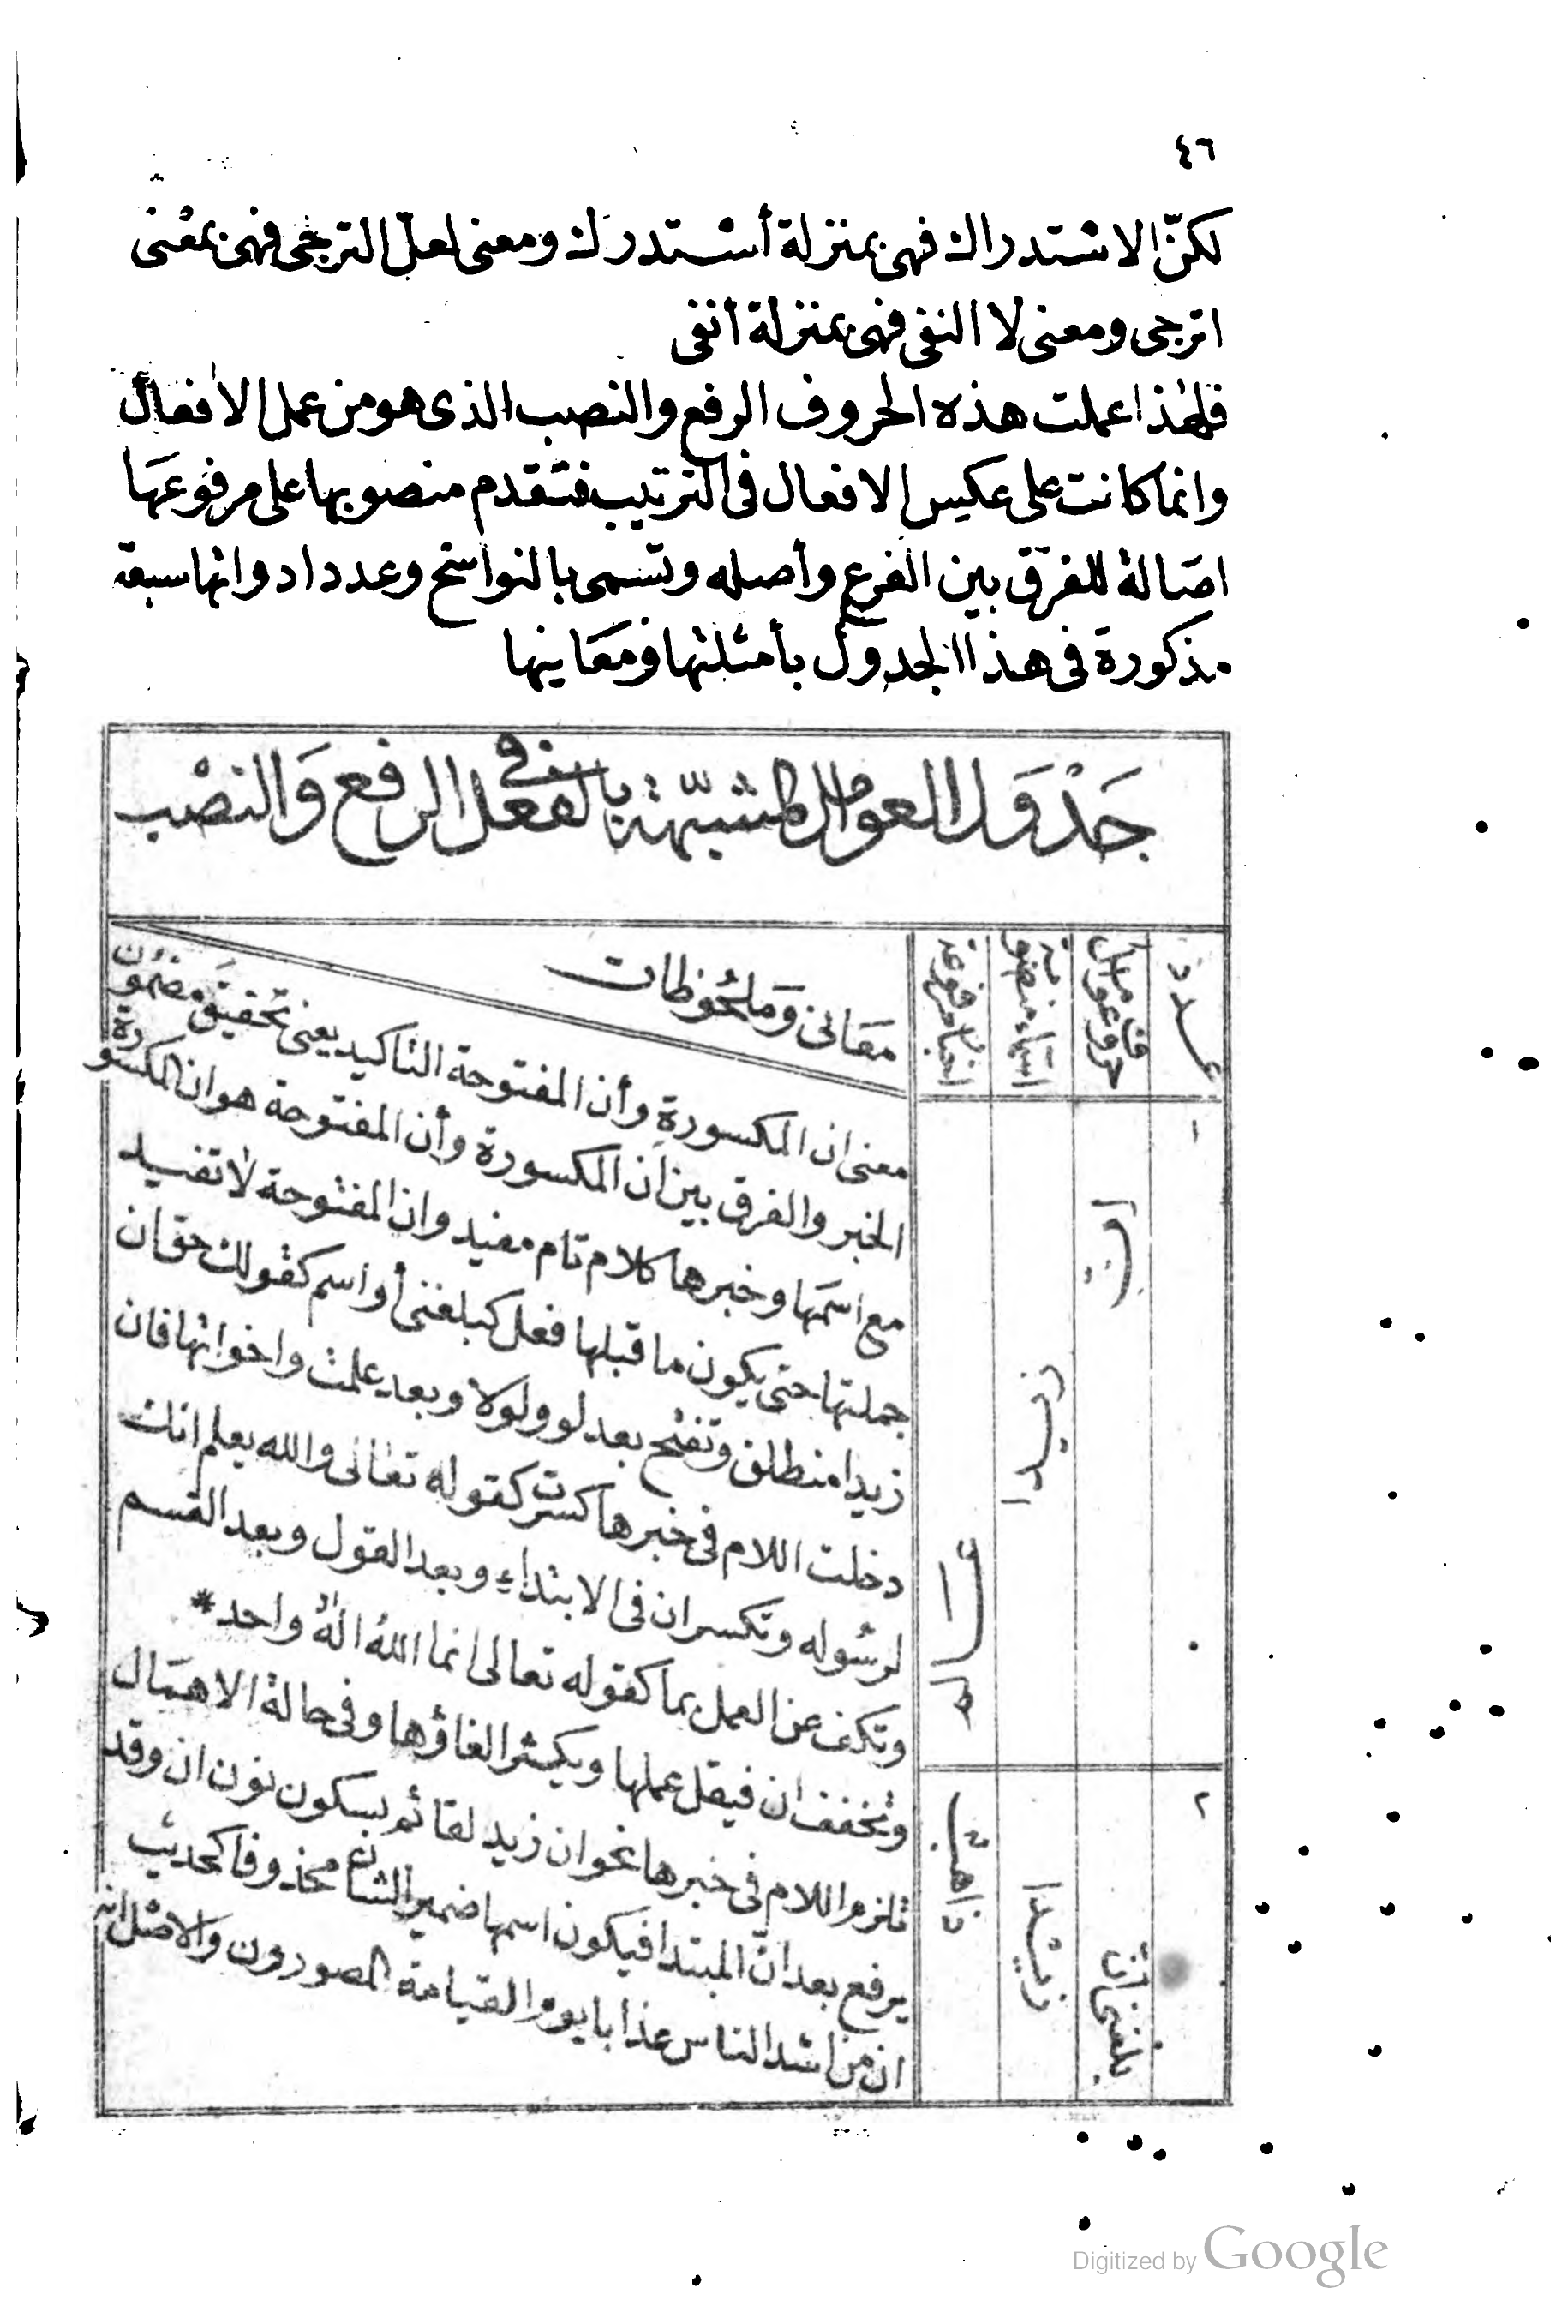 ٤٦
لكنّ الاستدراك فهى بمنزلة أستدرك ومعنى لعلّ الترجى فهى بمعنى
اترجى ومعنى لا النفى فهى بمنزلة أنفى
فلهذا عملت هذه الحروف الرفع والنصب الذى هو من عمل الافعال
وانما كانت على عكس الافعال فى الترتيب فتقدم منصوبها على مرفوعها
اصالة للفرق بين الفرع وأصله وتسمى بالنواسخ وعدد ادواتها سبعة
مذكورة فى هذا الجدول بأمثلتها ومعانيها
جَدْوَل العوامل المشبّهة بالفعل فى الرفع وَالنصْب
عدد
حروف عوامل
اسماء منصوبة
اخبار مرفوعة
معَانى وَملحُوظات
١
انّ
زيدا
قائم
٢
بلغنى أنّ
زيْدا
ذاهبٌ
معنى ان المكسورة وأن المفتوحة التاكيد يعنى تحقيق مضمون
الخبر والفرق بين ان المكسورة وأن المفتوحة هو ان المكسورة
مع اسمها وخبرها كلام تام مفيد وان المفتوحة لا تفيد
جملتها حتى يكون ما قبلها فعل كبلغنى أو اسم كقولك حق ان
زيدا منطلق وتفتح بعد لو ولولا وبعد علمت واخواتها فان
دخلت اللام فى خبرها كسرت كقوله تعالى والله يعلم انك
لرسوله وتكسر ان فى الابتداء وبعد القول وبعد القسم
وتكف عن العمل بما كقوله تعالى انما اللهُ الهٌ واحد *
وتخفف ان فيقل عملها ويكثر الغاؤها وفى حالة الاهمال
تلزم اللام فى خبرها نحو ان زيد لقائم بسكون نون ان وقد
يرفع بعد انّ المبتدا فيكون اسمها ضمير الشان محذوفا كحديث
ان من اشد الناس عذابا يوم القيامة المصورون وَالاصْل انه
Digitized by Google